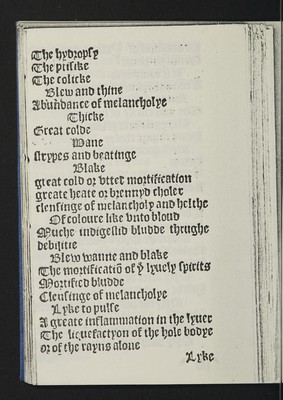 The hydropsy
The ptisike
The colicke
Blew and thine
Abundance of melancholye
Thicke
Great colde
Wane
strypes and beatinge
Blake
great cold or vtter mortification
greate heate or brennyd choler
clensinge of melancholy and helthe
Of coloure like vnto bloud
Muche indigestid bludde thrughe
debilitie
Blew wanne and blake
The mortificatiõ of y lyuely spirits
Mortified bludde
Clensinge of melancholye
Lyke to pulse
A greate inflammation in the lyuer
The liquefactyon of the hole bodye
or of the rayns alone
Lyke